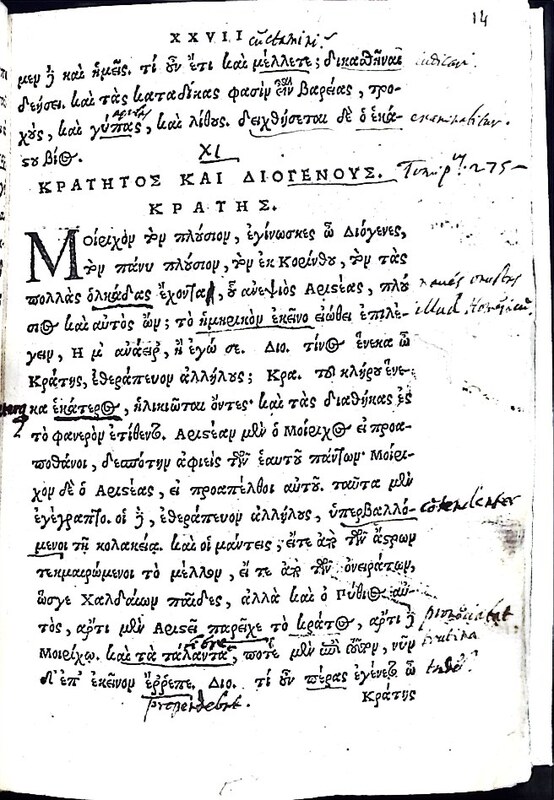 14
XXVII
μεν ἢ καὶ ἡμεῖς. τί οὖν ἔτι καὶ μέλλετε; δικασθῆναι
δεήσει. καὶ τὰς καταδίκας φασὶν εἶναι βαρείας, προ-
χὺς, καὶ γύπας, καὶ λίθους. δειχθήσεται δὲ ὁ ἑκά-
στου βίος.
XI
ΚΡΑΤΗΤΟΣ ΚΑΙ ΔΙΟΓΕΝΟΥΣ.
ΚΡΑΤΗΣ.
Μοίριχον τὸν πλούσιον, ἐγίνωσκες ὦ Διόγενες,
τὸν πάνυ πλούσιον, τὸν ἐκ Κορίνθου, τὸν τὰς
πολλὰς ὁλκάδας ἔχοντα, οὗ ἀνεψιὸς Αριστέας, πλού
σιος καὶ αὐτὸς ὤν; τὸ ὁμηρικὸν ἐκεῖνο εἰώθει ἐπιλέ-
γειν, Η μ' ἀνάειρ', ἢ ἐγώ σε. Διο. τίνος ἕνεκα ὦ
Κράτης, ἐθεράπευον ἀλλήλους; Κρα. τοῦ κλήρου ἕνε-
κα ἑκάτερος, ἡλικιῶται ὄντες. καὶ τὰς διαθήκας ἐς
τὸ φανερὸν ἐτίθεντο. Αριστέαν μὲν ὁ Μοίριχος εἰ προα-
ποθάνοι, δεσπότην ἀφιεὶς τῶν ἑαυτοῦ πάντων. Μοίρι-
χον δὲ ὁ Αριστέας, εἰ προαπέλθοι αὐτοῦ. ταῦτα μὲν
ἐγέγραπτο. οἱ δὲ, ἐθεράπευον ἀλλήλους, ὑπερβαλλό-
μενοι τῇ κολακείᾳ. καὶ οἱ μάντεις, εἴτε ἀπὸ τῶν ἄστρων
τεκμαιρόμενοι τὸ μέλλον, εἴτε ἀπὸ τῶν ὀνειράτων,
ὥσγε Χαλδαίων παῖδες, ἀλλὰ καὶ ὁ Πύθιος αὐ-
τὸς, ἄρτι μὲν Αριστέᾳ παρεῖχε τὸ κράτος, ἄρτι δὲ
Μοιρίχῳ. καὶ τὰ τάλαντα, ποτὲ μὲν ἐπὶ τοῦτον, νῦν
δ' ἐπ' ἐκεῖνον ἔρρεπε. Διο. τί οὖν πέρας ἐγένετο ὦ
Κράτης